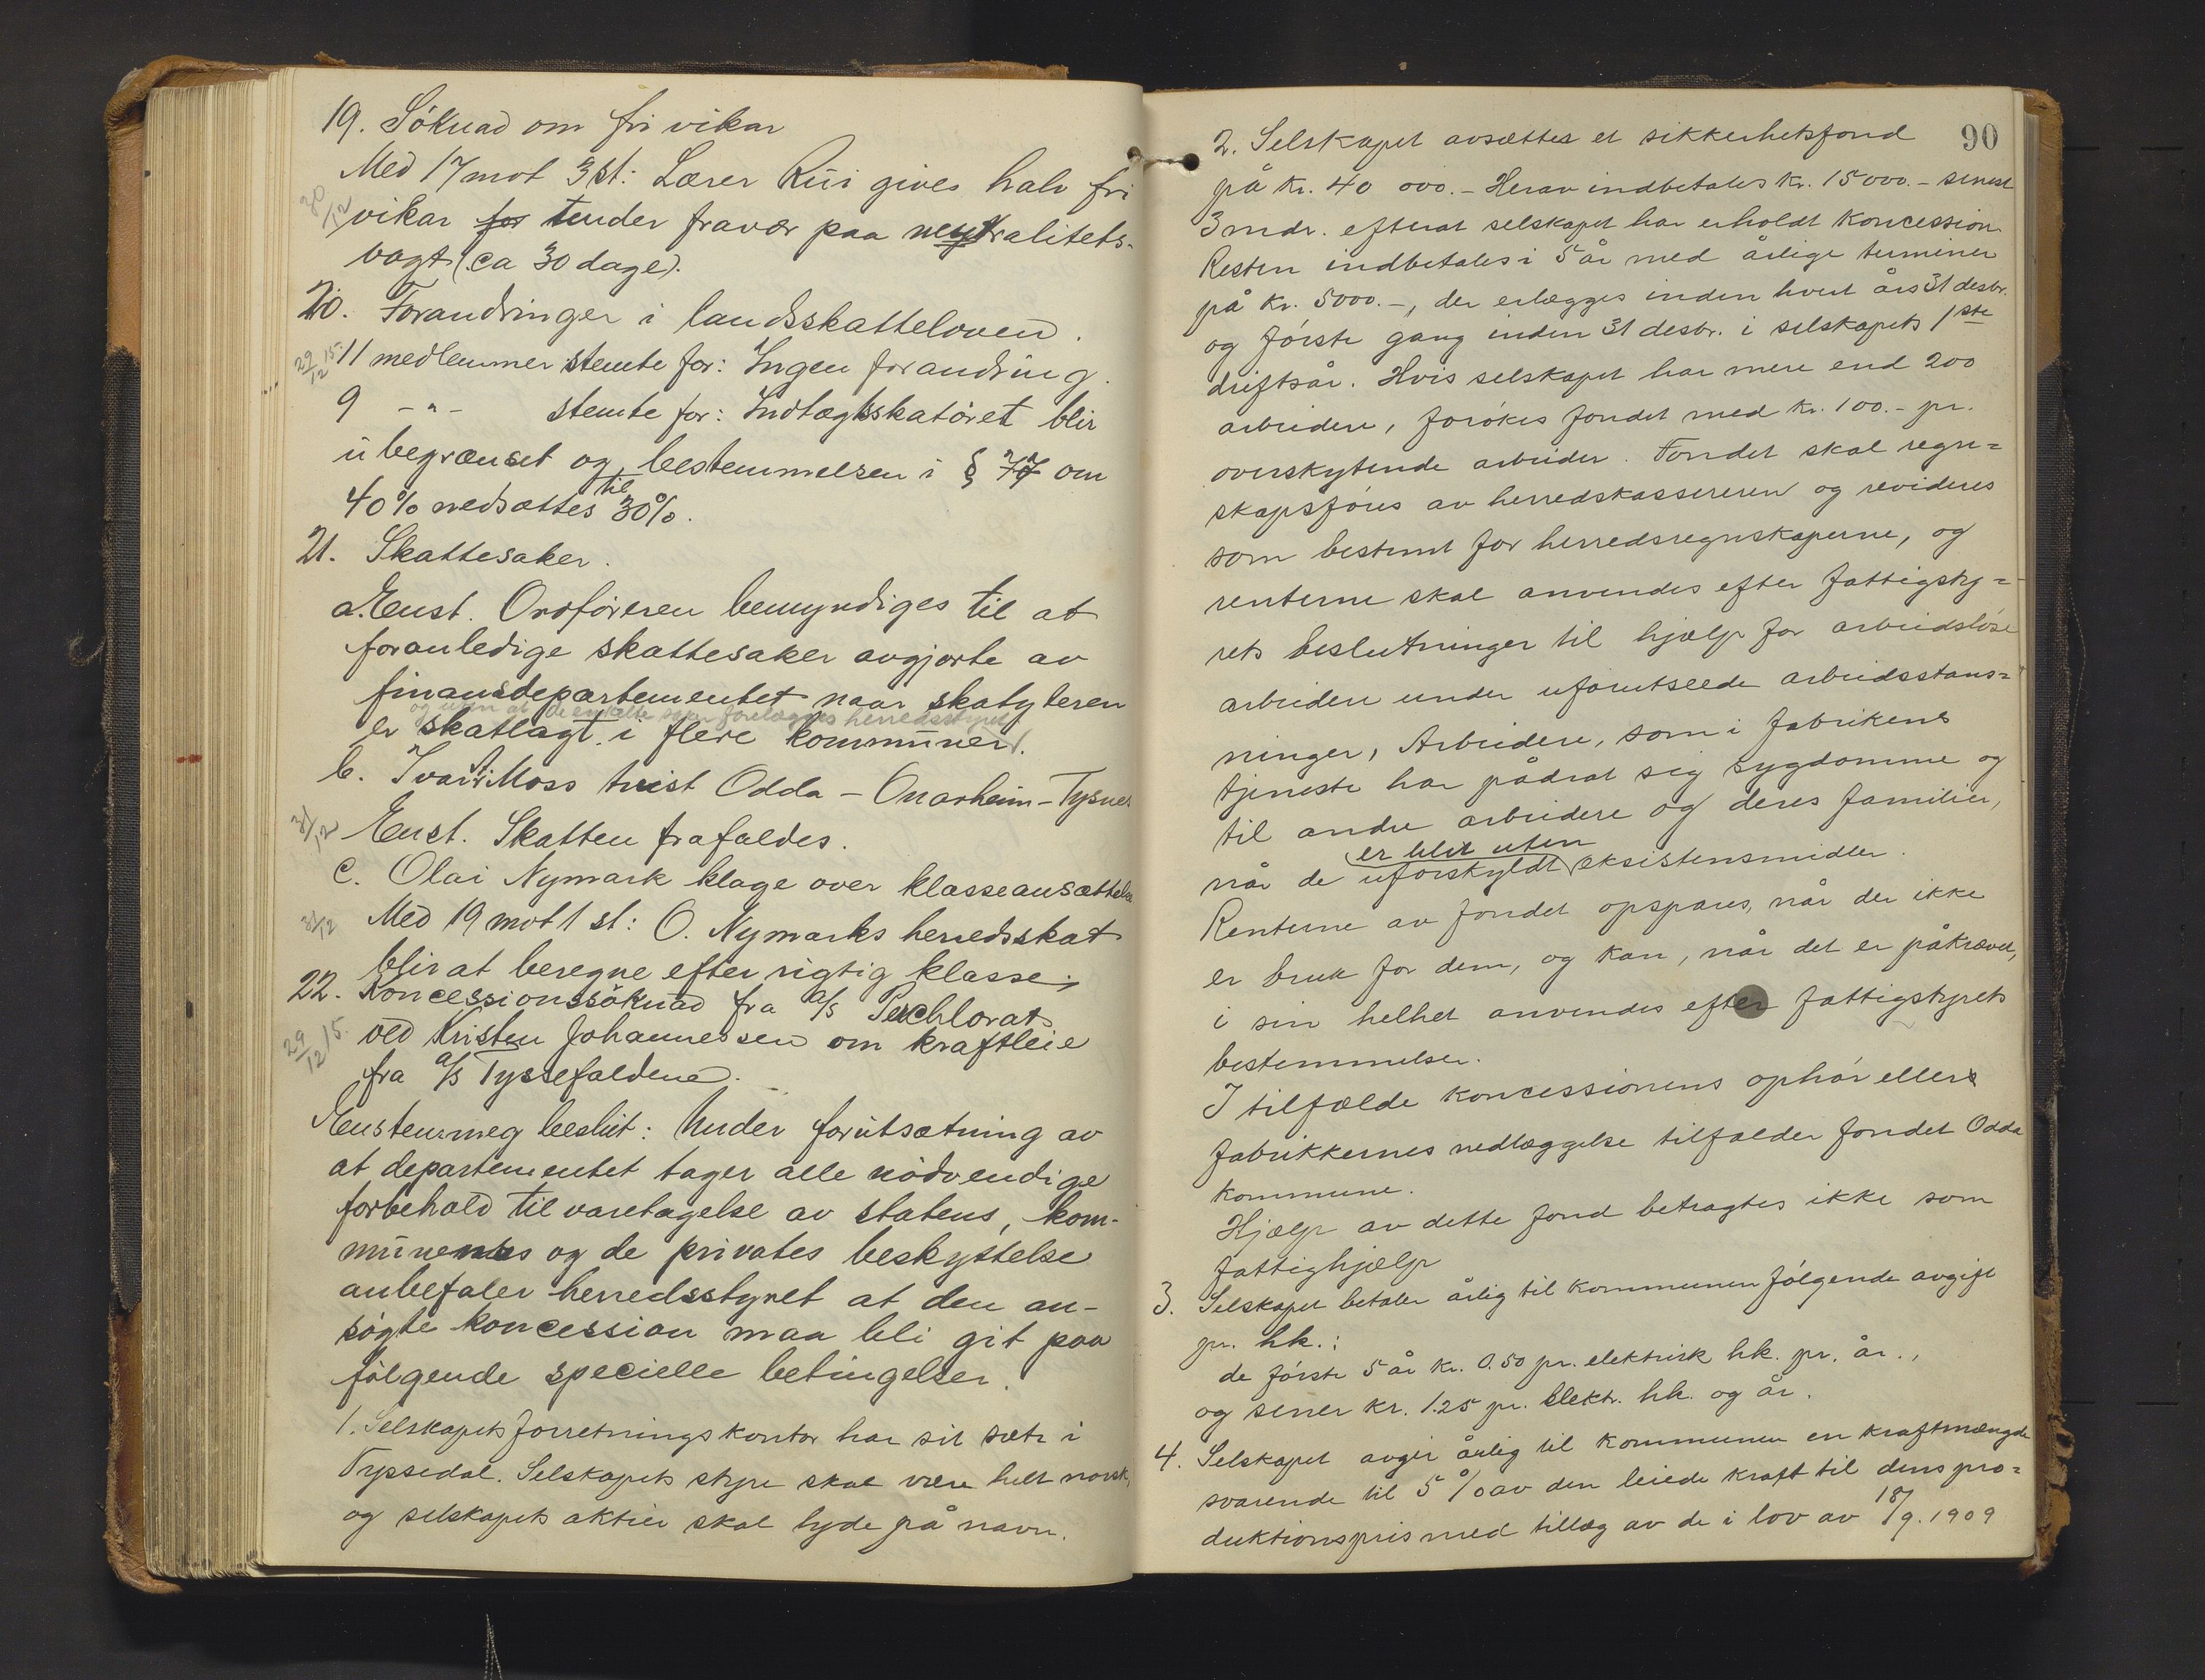 19. Søknad om fri vikar
Med 17 mot 3 st: Lærer Rui gives halv fri
30/12
vikar for under fravær paa neytralitets-
vagt (ca 30 dage).
20. Forandringer i landsskatteloven.
29/12 15. 11 medlemmer stemte for: Ingen forandring.
9 -"- stemte for: Indtægtsskatøret blir
ubegrænset og bestemmelsen i § 77 om
40% nedsættes til 30%.
21. Skattesaker.
a. Enst. Ordføreren bemyndiges til at
foranledige skattesaker avgjorte av
finansdepartementet naar skatyteren
og uten at de enkelte saker forelægges herredsstyret
er skatlagt i flere kommuner.
b. Ivar Moss tvist Odda – Onarheim – Tysnes
31/12 Enst. Skatten frafaldes.
c. Olai Nymark klage over klasseansættelse
31/12 Med 19 mot 1 st: O. Nymarks herredsskat
blir at beregne efter rigtig klasse.
22. Koncessionssøknad fra a/s Perchlorat
29/12 15. ved Kristen Johannessen om kraftleie
fra a/s Tyssefaldene.
Enstemmeg beslut: Under forutsætning av
at departementet tager alle nødvendige
forbehold til varetagelse av statens, kom-
munenes og de privates beskyttelse
anbefaler herredsstyret at den an-
søgte koncession maa bli git paa
følgende specielle betingelser.
1. Selskapets forretningskontor har sit sæte i
Tyssedal. Selskapets styre skal være helt norsk,
og selskapets aktier skal lyde på navn.
90
2. Selskapet avsættes et sikkerhetsfond
på kr. 40 000.- Herav indbetales kr. 15000.- senest
3 mdr. efterat selskapet har erholdt koncession.
Resten indbetales i 5 år med årlige terminer
på kr. 5000.-, der erlægges inden hvert års 31 desbr.
og første gang inden 31 desbr. i selskapets 1ste
driftsår. Hvis selskapet har mere end 200
arbeidere, forøkes fondet med kr. 100.- pr.
overskytende arbeider. Fondet skal regn=
skapsføres av herredskassereren og revideres
som bestemt for herredsregnskaperne, og
renterne skal anvendes efter fattigsty=
rets beslutninger til hjælp for arbeidsløse
arbeidere under uforutseede arbeidsstans=
ninger, Arbeidere, som i fabrikens
tjeneste har pådrat sig sygdomme og
til andre arbeidere og deres familier,
er blit uten
når de uforskyldt eksistensmidler.
Renterne av fondet opspares, når der ikke
er bruk for dem, og kan, når det er påkrævet,
i sin helhet anvendes efter fattigstyrets
bestemmelser.
I tilfælde koncessionens ophør ellers
fabrikkernes nedlæggelse tilfalder fondet Odda
kommune.
Hjælp av dette fond betragtes ikke som
fattighjælp
3. Selskapet betaler årlig til kommunen følgende avgift
pr. hk.:
de første 5 år kr. 0.50 pr. elektrisk hk. pr. år.,
og sener kr. 1.25 pr. elektr. hk. og år.
4. Selskapet avgir årlig til kommunen en kraftmængde
svarende til 5% av den leiede kraft til dens pro=
duktionspris med tillæg av de i lov av 18/9. 1909